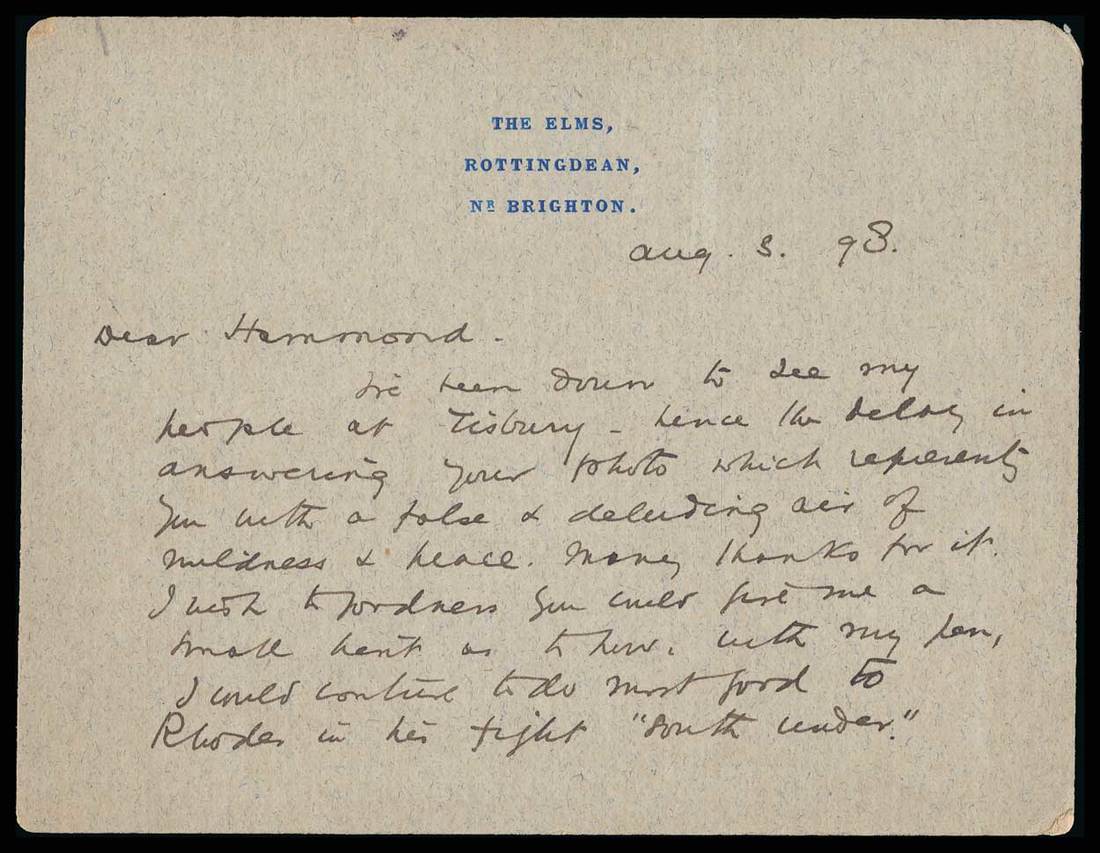 THE ELMS,
ROTTINGDEAN,
NR BRIGHTON.
Aug. 3. 98.
Dear Hammond.
I've been down to see my
people at Tisbury - hence the delay in
answering your photo which represents
you with a false & deluding air of
mildness & peace. Many thanks for it.
I wish to goodness you could give me a
small hint as to how, with my pen,
I could contrive to do most good to
Rhodes in his fight "South under."